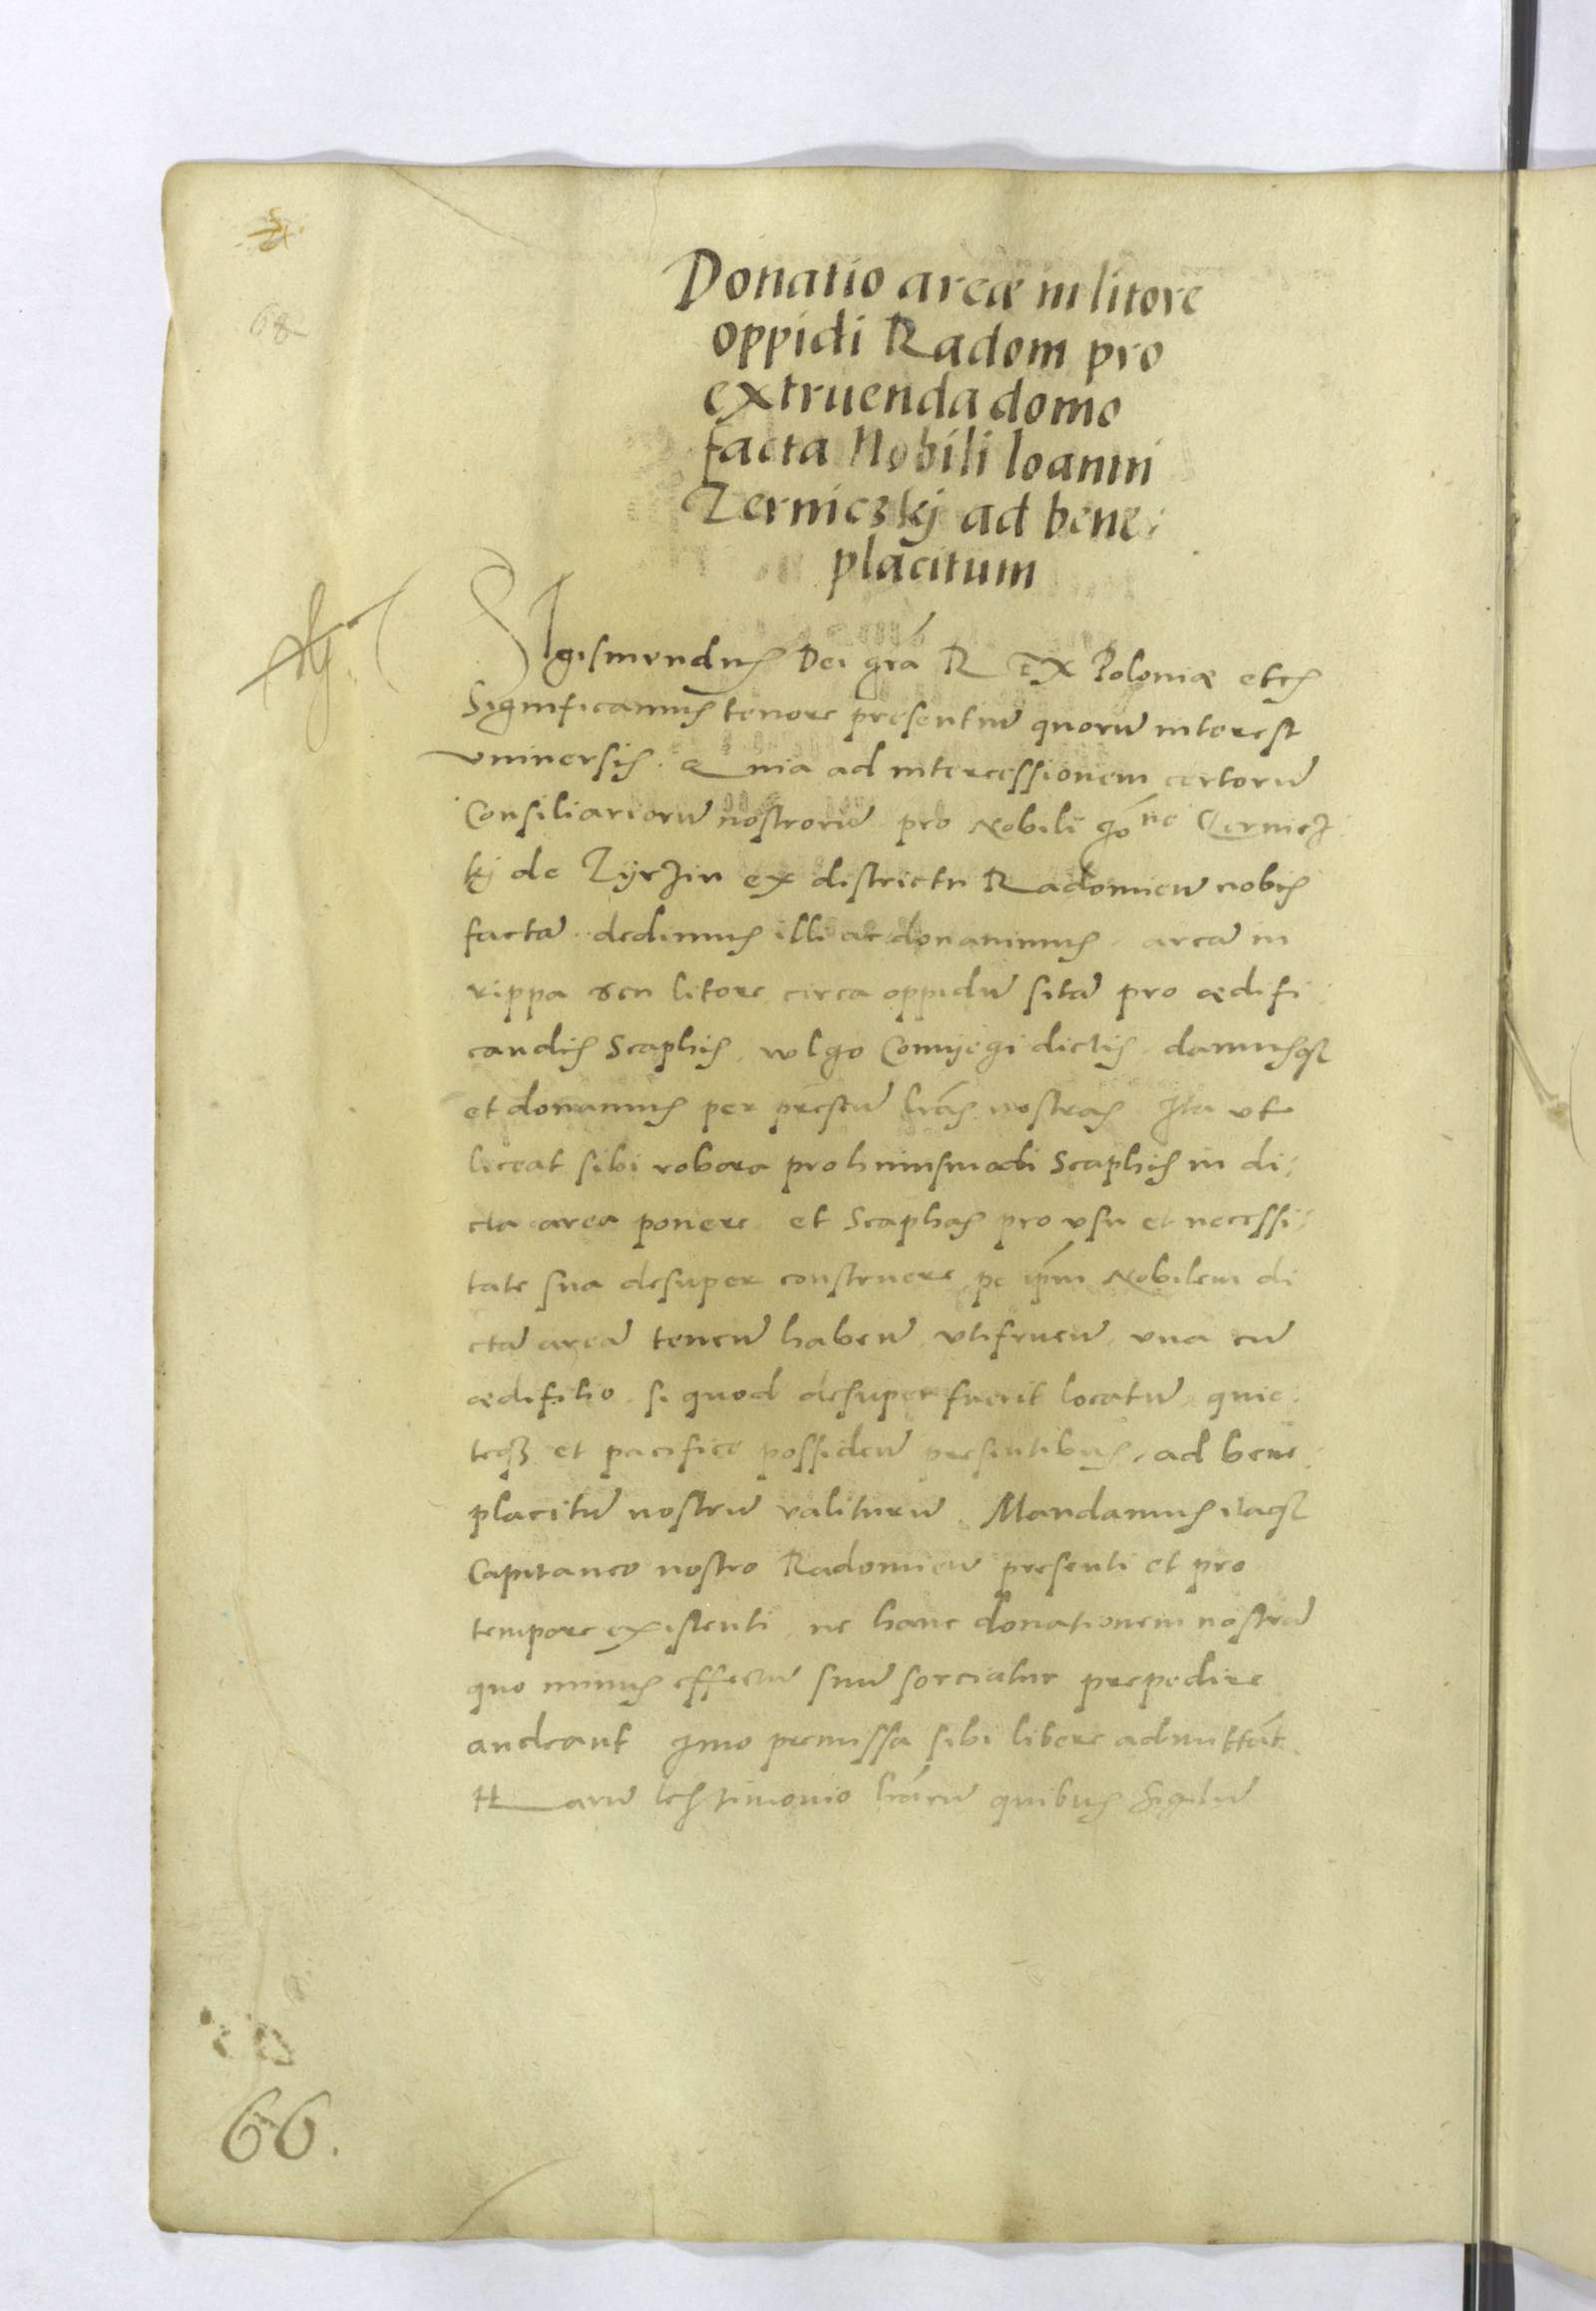 68
Donatio areæ in litore
oppidi Radom pro
extruenda domo
facta Nobili Ioanni
Zerniczkj ad bene
placitum
SIgismundus Dei gr̃a REX Poloniæ etcs
Significamus tenore presentiũ quorũ interest
vniuersis. Quia ad intercessionem certorũ
Consiliariorũ nostrorũ pro Nobili Joãne Czernicz
kj de Zyrzin ex districtu Radomieñ nobis
factã dedimus illi ac donauimus areã in
rippa seu litore circa oppidũ sitã pro ædifi
candis Scaphis wlgo Comijegi dictis damusqꝫ
et donamus per preseñ lr̃as nostras Ita vt
liceat sibi robora pro huiusmodi Scaphis in di
cta area ponere et Scaphas pro vsu et necessi
tate sua desuper construere, pe ip̃m Nobilem di
ctã areã teneñ habeñ vtifrueñ vna cũ
ædifitio si quod desuper fuerit locatũ quie
teqꝫ et pacifice possideñ presentibus ad bene
placitũ nostrũ valiturũ. Mandamus itaqꝫ
Capitaneo nostro Radomieñ presenti et pro
tempore existenti ne hanc donationem nostrã
quo minus effectũ suũ sorciatur prepedire
audeant Imo premissa sibi libere admittãt
Harũ testimonio lr̃arũ quibus Sigilũ
66.